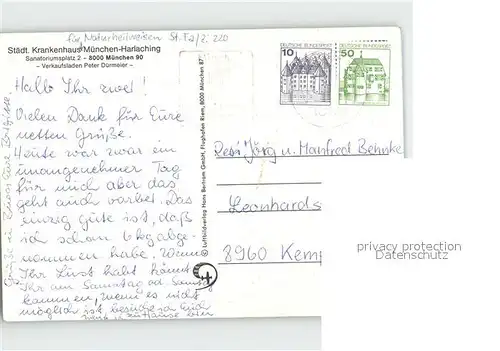 für Naturheilweisen St. Fa/Zi 220
Städt. Krankenhaus München-Harlaching
Sanatoriumsplatz 2 – 8000 München 90
– Verkaufsladen Peter Dürmeier –
Hallo Ihr zwei!
Vielen Dank für Eure
netten Grüße.
Heute war zwar ein
unangenehmer Tag
für mich aber das
geht auch vorbei. Das
einzig gute ist, daß
ich schon 6 kg abge-
nommen habe. Wenn
Ihr Lust habt könnt
Ihr am Samstag od. Sonntag
kommen, wenn es nicht
möglich ist, besuche ich Euch
wenn ich zuhause bin
Grüße u. Eure Brigitte
Luftbildverlag Hans Bertram GmbH, Flughafen Riem, 8000 München 87
DEUTSCHE BUNDESPOST
10
DEUTSCHE BUNDESPOST
50
Resi Jörg u. Manfred Behnke
Leonhards
8960 Kemp
privacy protection
Datenschutz